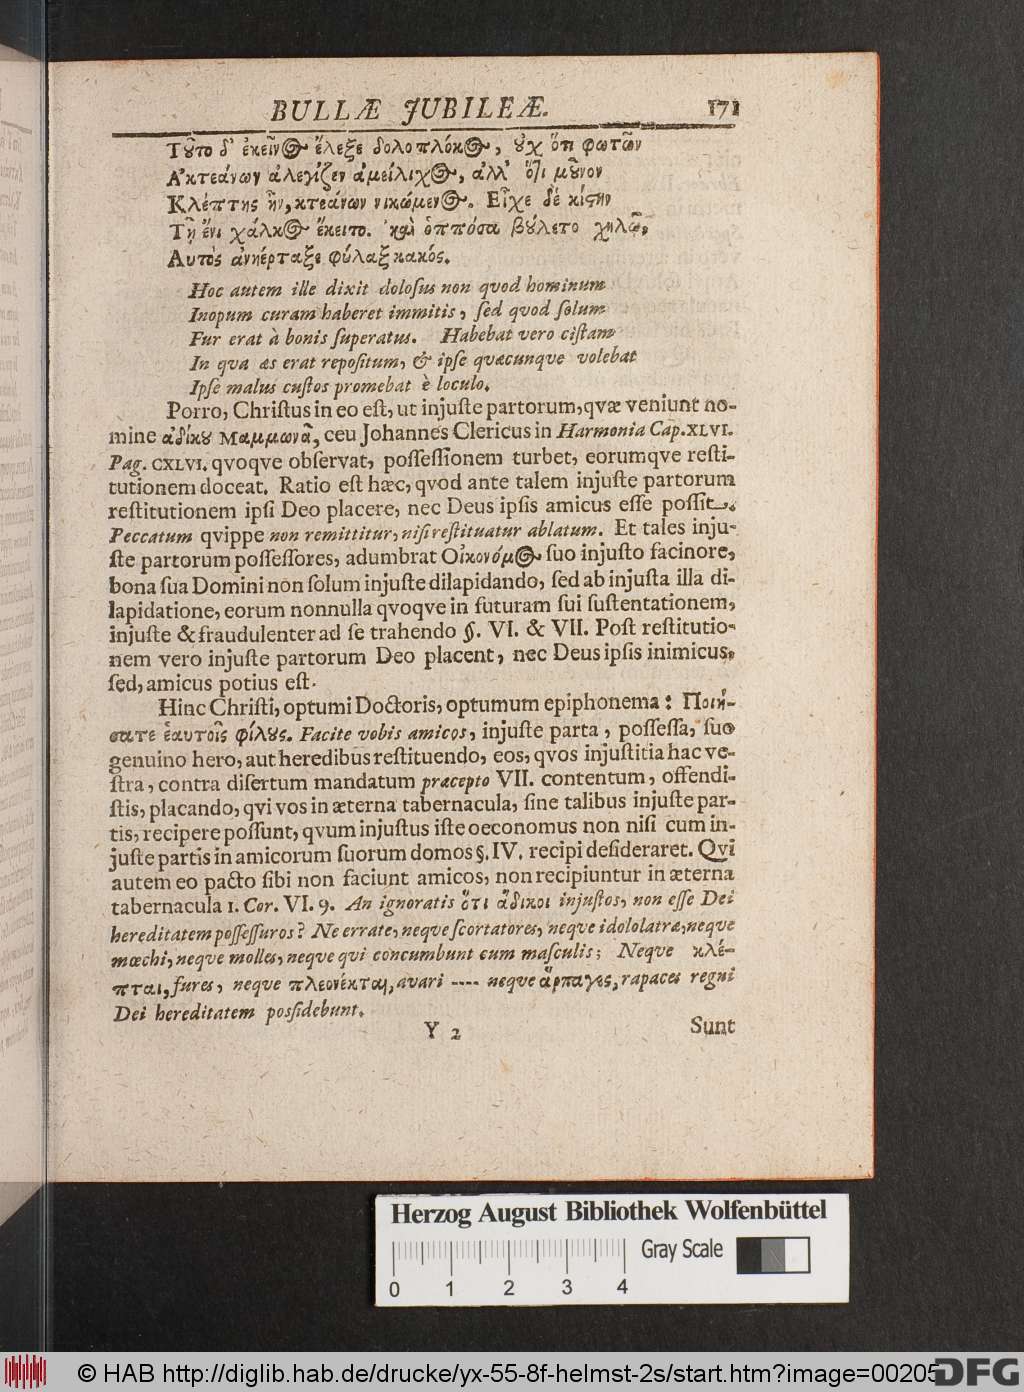 BULLÆ JUBILEÆ. 171
Τῦτο δ' ἐκεῖνος ἔλεξε δολοπλόκος, ὐχ ὅτι φωτῶν
Ακτεάνων ἀλεγίζεν ἀμείλιχος, ἀλλ' ὅτι μῦνον
Κλέπτης ἦν, κτεάνων νικώμενος. Εἶχε δέ κίςην
Τῇ ἔνι χάλκος ἔκειτο. καὶ ὁππόσα βύλετο χηλῶ,
Αυτὸς ἀνηέρταξε φύλαξ κακός.
Hoc autem ille dixit doloſus non quod hominum
Inopum curam haberet immitis, ſed quod ſolum
Fur erat à bonis ſuperatus. Habebat vero ciſtam
In qua æs erat repoſitum, & ipſe quæcunque volebat
Ipſe malus cuſtos promebat è loculo.
Porro, Chriſtus in eo eſt, ut injuſte partorum, qvæ veniunt no-
mine ἀδίκυ Μαμμωνᾶ, ceu Johannes Clericus in Harmonia Cap. XLVI.
Pag. CXLVI. qvoqve obſervat, poſſeſſionem turbet, eorumqve reſti-
tutionem doceat. Ratio eſt hæc, qvod ante talem injuſte partorum
reſtitutionem ipſi Deo placere, nec Deus ipſis amicus eſſe poſſit.
Peccatum qvippe non remittitur, niſi reſtituatur ablatum. Et tales inju-
ſte partorum poſſeſſores, adumbrat Οἰκονόμος ſuo injuſto facinore,
bona ſua Domini non ſolum injuſte dilapidando, ſed ab injuſta illa di-
lapidatione, eorum nonnulla qvoqve in futuram ſui ſuſtentationem,
injuſte & fraudulenter ad ſe trahendo §. VI. & VII. Poſt reſtitutio-
nem vero injuſte partorum Deo placent, nec Deus ipſis inimicus,
ſed, amicus potius eſt.
Hinc Chriſti, optumi Doctoris, optumum epiphonema: Ποιή-
σατε ἑαυτοῖς φίλυς. Facite vobis amicos, injuſte parta, poſſeſſa, ſuo
genuino hero, aut heredibus reſtituendo, eos, qvos injuſtitia hac ve-
ſtra, contra diſertum mandatum præcepto VII. contentum, offendi-
ſtis, placando, qvi vos in æterna tabernacula, ſine talibus injuſte par-
tis, recipere poſſunt, qvum injuſtus iſte oeconomus non niſi cum in-
juſte partis in amicorum ſuorum domos §. IV. recipi deſideraret. Qvi
autem eo pacto ſibi non faciunt amicos, non recipiuntur in æterna
tabernacula 1. Cor. VI. 9. An ignoratis ὅτι ἄδικοι injuſtos, non eſſe Dei
hereditatem poſſeſſuros? Ne errate, neque ſcortatores, neque idololatræ, neque
mœchi, neque molles, neque qui concumbunt cum maſculis; Neque κλέ-
πται, fures, neque πλεονέκται, avari ---- neque ἅρπαγες, rapaces regni
Dei hereditatem poſſidebunt.
Y 2 Sunt
Herzog August Bibliothek Wolfenbüttel
Gray Scale
0 1 2 3 4
© HAB http://diglib.hab.de/drucke/yx-55-8f-helmst-2s/start.htm?image=00205
DFG